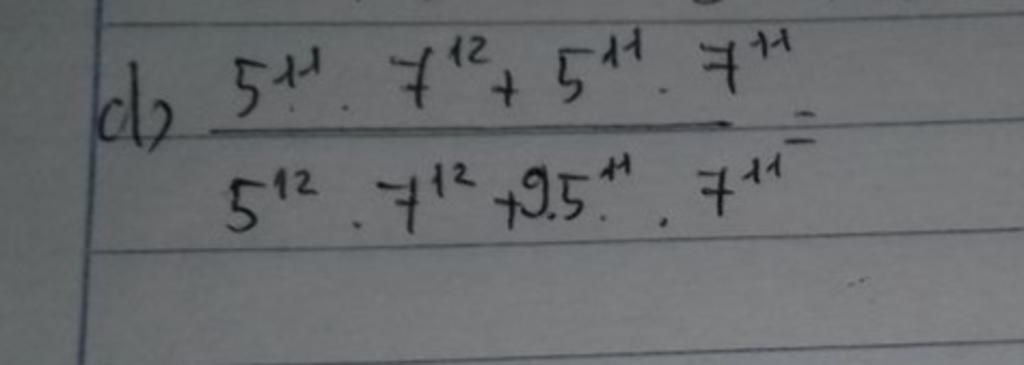 d) 5¹¹ . 7¹² + 5¹¹ . 7¹¹
5¹² . 7¹² + 9.5¹¹ . 7¹¹ =